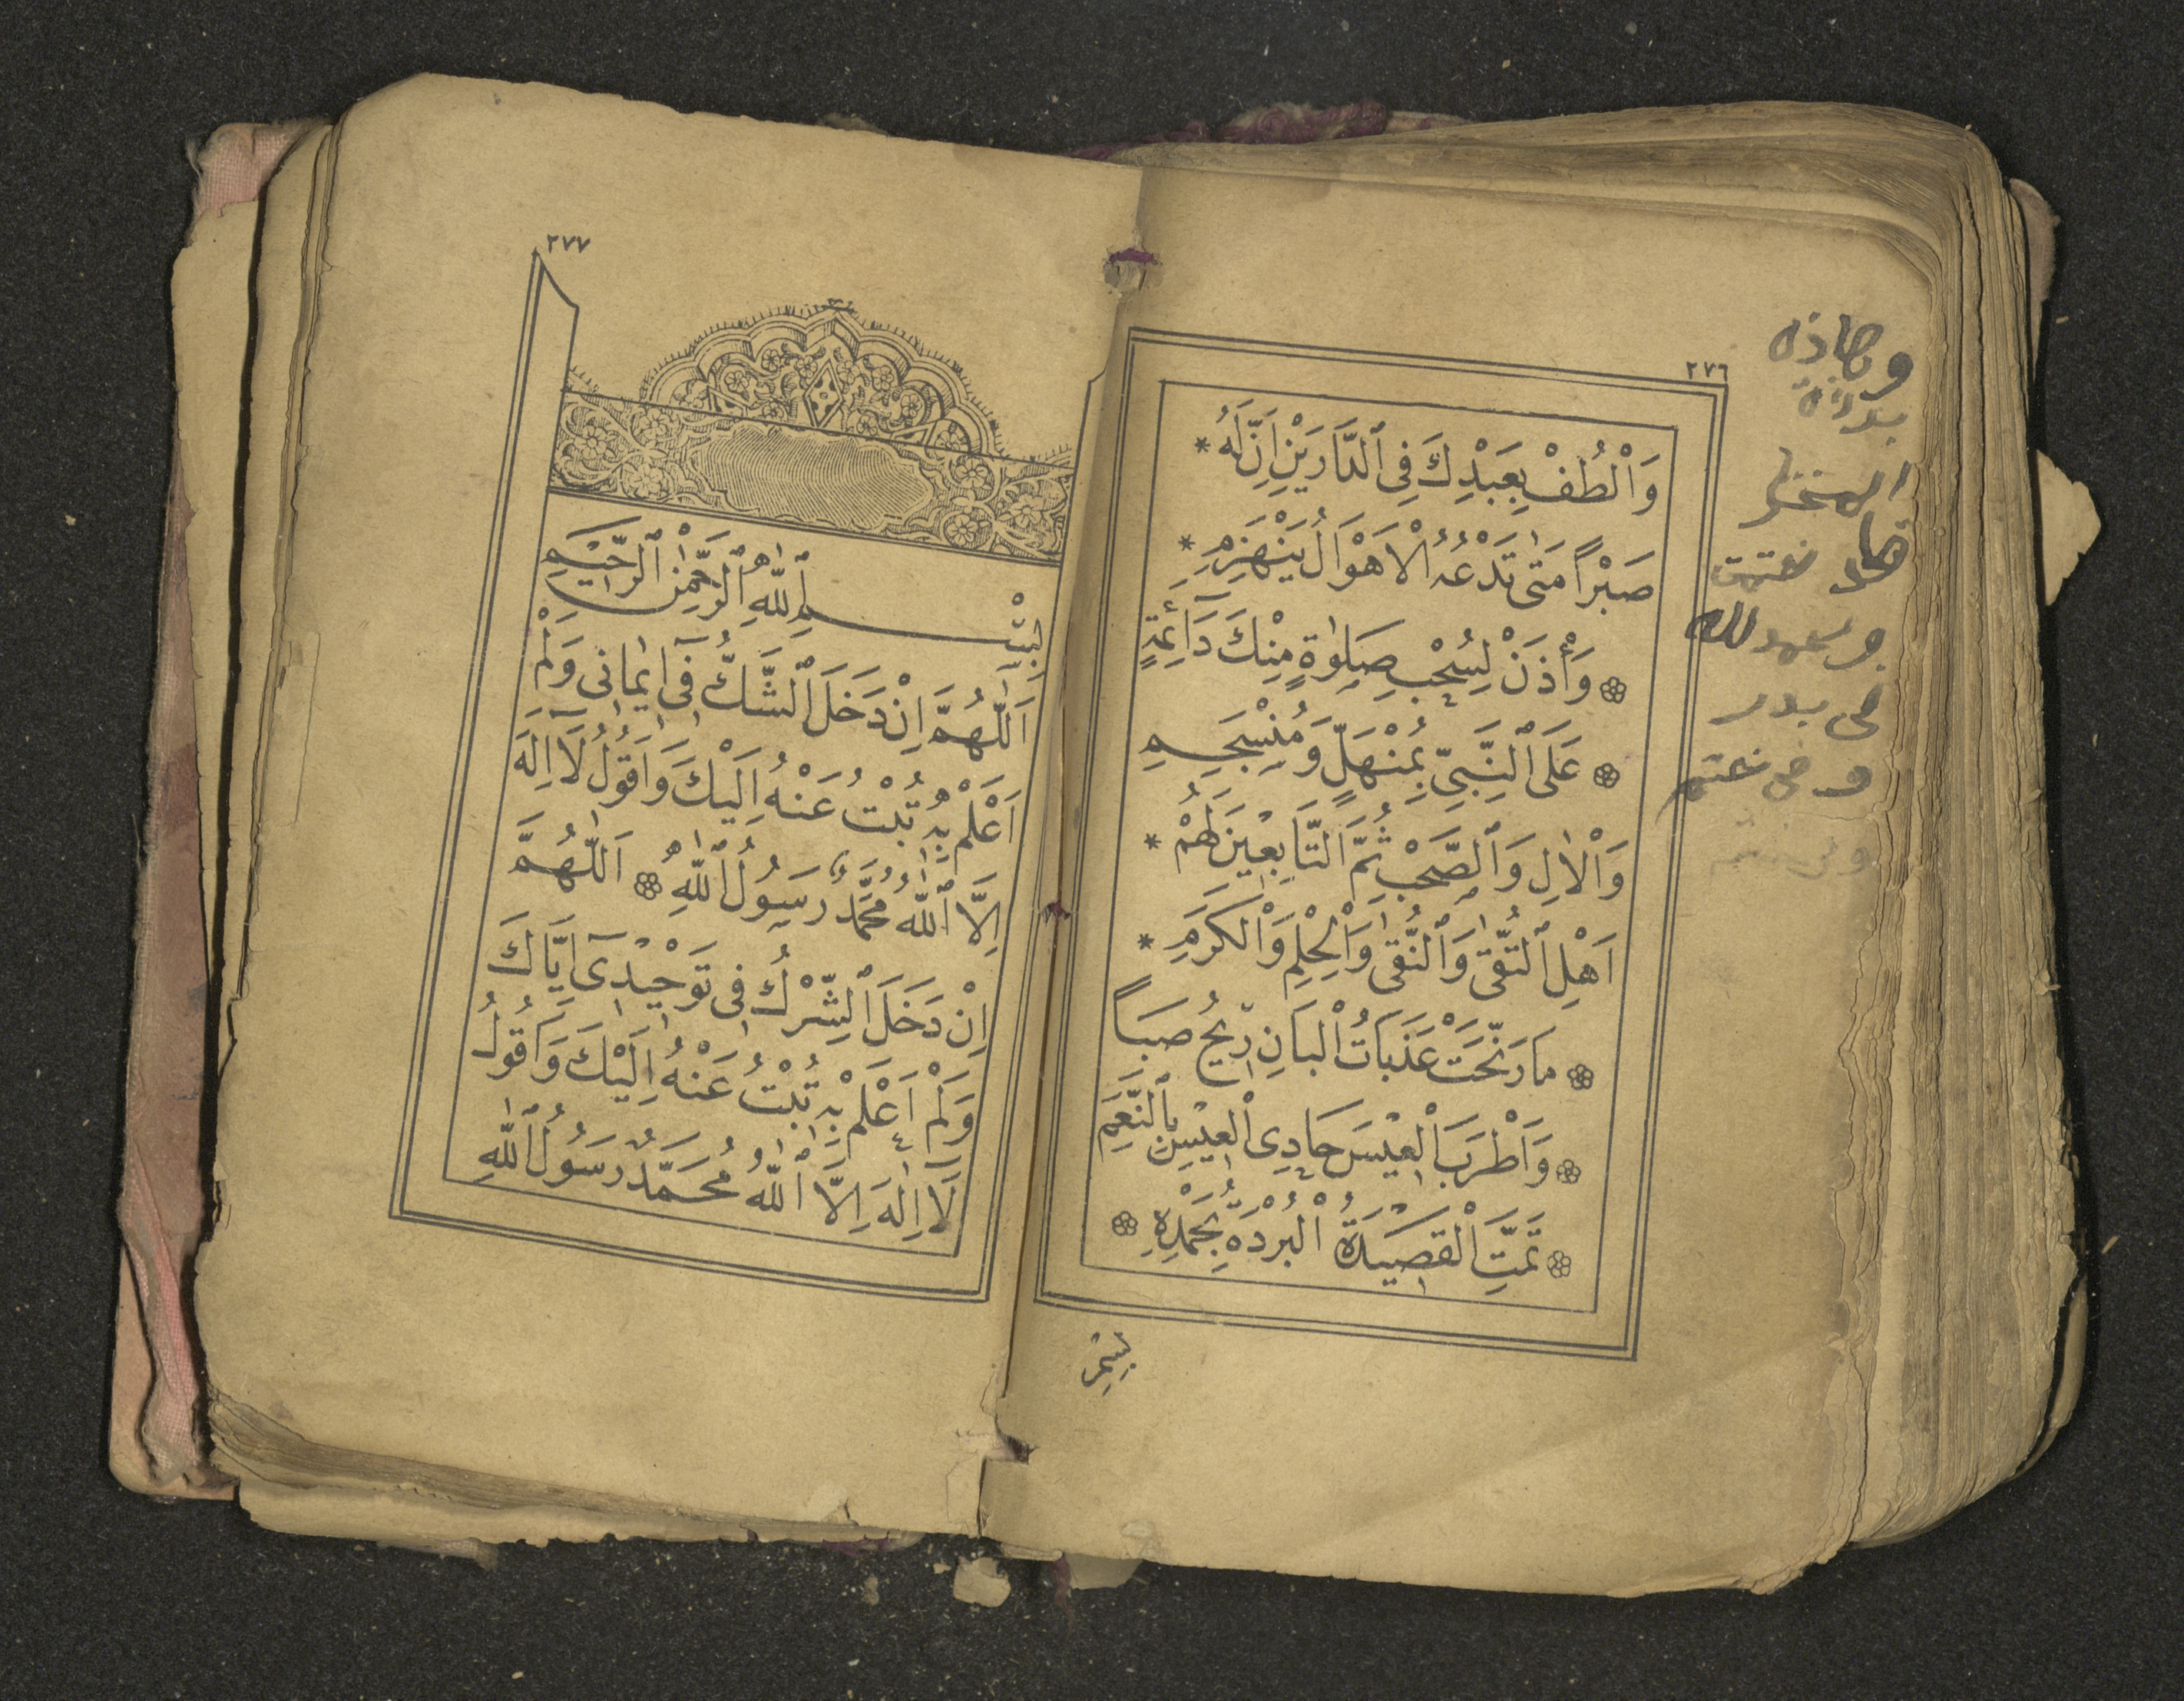 ٢٧٦
وَالْطُفْ بِعَبْدِكَ فِى ٱلدَّارَيْنِ اِنَّ لَهُ *
صَبْرًا مَتٰى تَدْعُهُ الْاَهْوَالُ يَنْهَزِمِ *
وَأْذَنْ لِسُحْبِ صَلٰوةٍ مِنْكَ دَآئِمَةٍ
عَلَى ٱلنَّبِىِّ بِمُنْهَلٍّ وَمُنْسَجِمِ
وَالْاٰلِ وَٱلصَّحْبِ ثُمَّ التَّابِعِينَ لَهُمْ *
اَهْلِ ٱلتُّقٰى وَٱلنُّقٰى وَالْحِلْمِ وَالْكَرَمِ *
مَا رَنَّحَتْ عَذَبَاتُ الْبَانِ رِيحُ صَبًا
وَاَطْرَبَ الْعِيْسَ حَادِى الْعِيْسِ بِالنَّغَمِ
تَمَّتِ الْقَصِيْدَةُ الْبُرْدَةُ بِحَمْدِهِ
بِسْمِ
٢٧٧
بِسْمِ ٱللّٰهِ ٱلرَّحْمٰنِ ٱلرَّحِيْمِ
اَللّٰهُمَّ اِنْ دَخَلَ ٱلشَّكُّ فِىٓ اِيمَانِى وَلَمْ
اَعْلَمْ بِهِ تُبْتُ عَنْهُ اِلَيْكَ وَاَقُولُ لَآ اِلٰهَ
اِلَّا ٱللّٰهُ مُحَمَّدٌ رَسُولُ ٱللّٰهِ اَللّٰهُمَّ
اِنْ دَخَلَ ٱلشِّرْكُ فِى تَوْحِيْدِىٓ اِيَّاكَ
وَلَمْ اَعْلَمْ بِهِ تُبْتُ عَنْهُ اِلَيْكَ وَاَقُولُ
لَآ اِلٰهَ اِلَّا ٱللّٰهُ مُحَمَّدٌ رَسُولُ ٱللّٰهِ